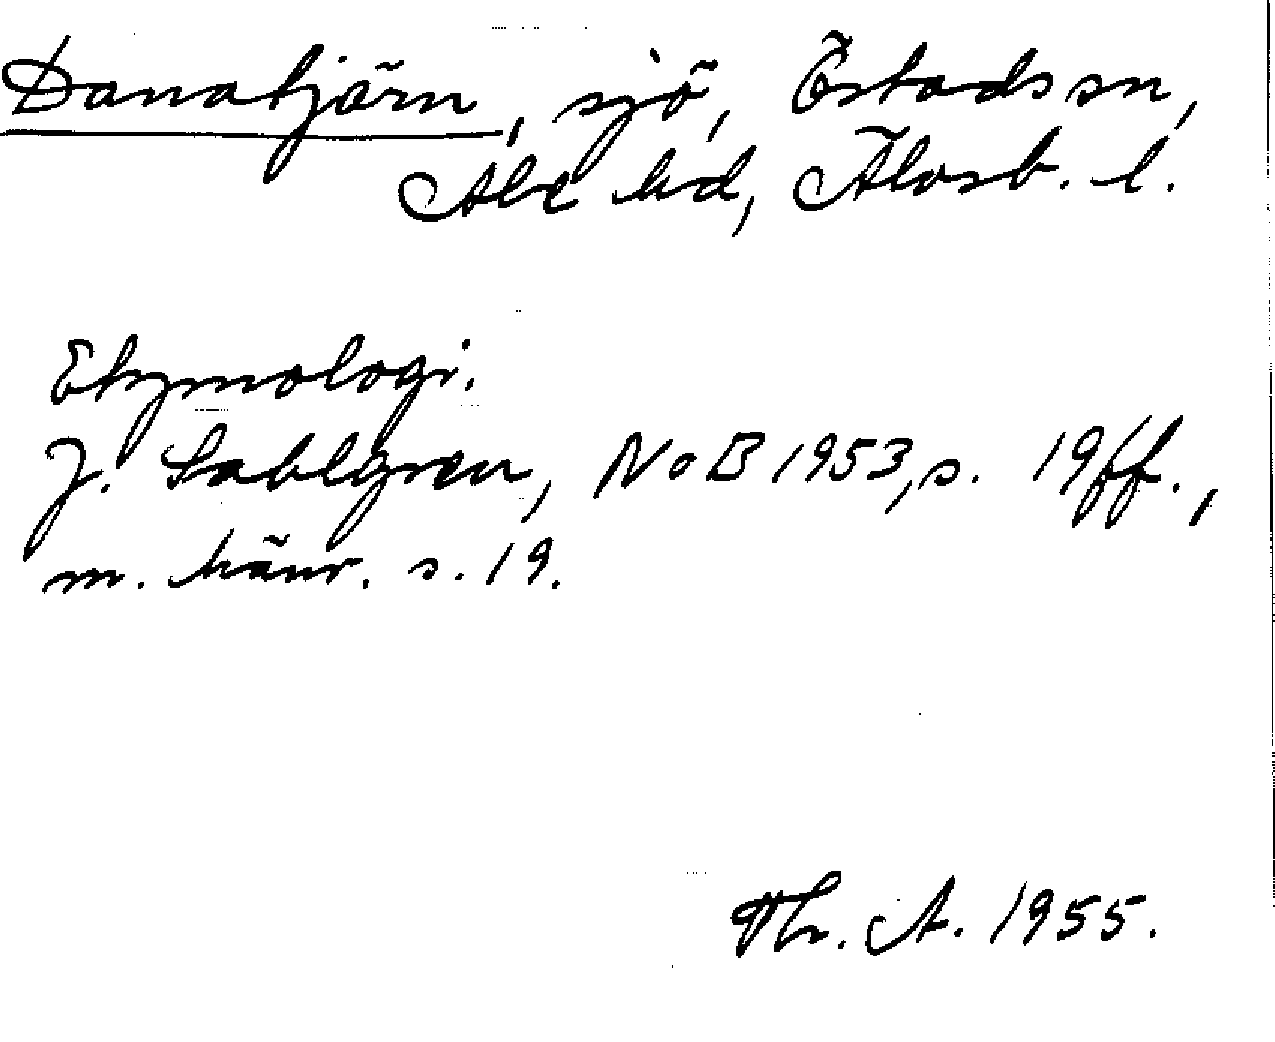 Danatjärn, sjö, Östads sn,
Ale hd, Älvsb. l.
Etymologi.
J. Sahlgren, NoB 1953, s. 19 ff.,
m. hänv. s. 19.
Th. A. 1955.